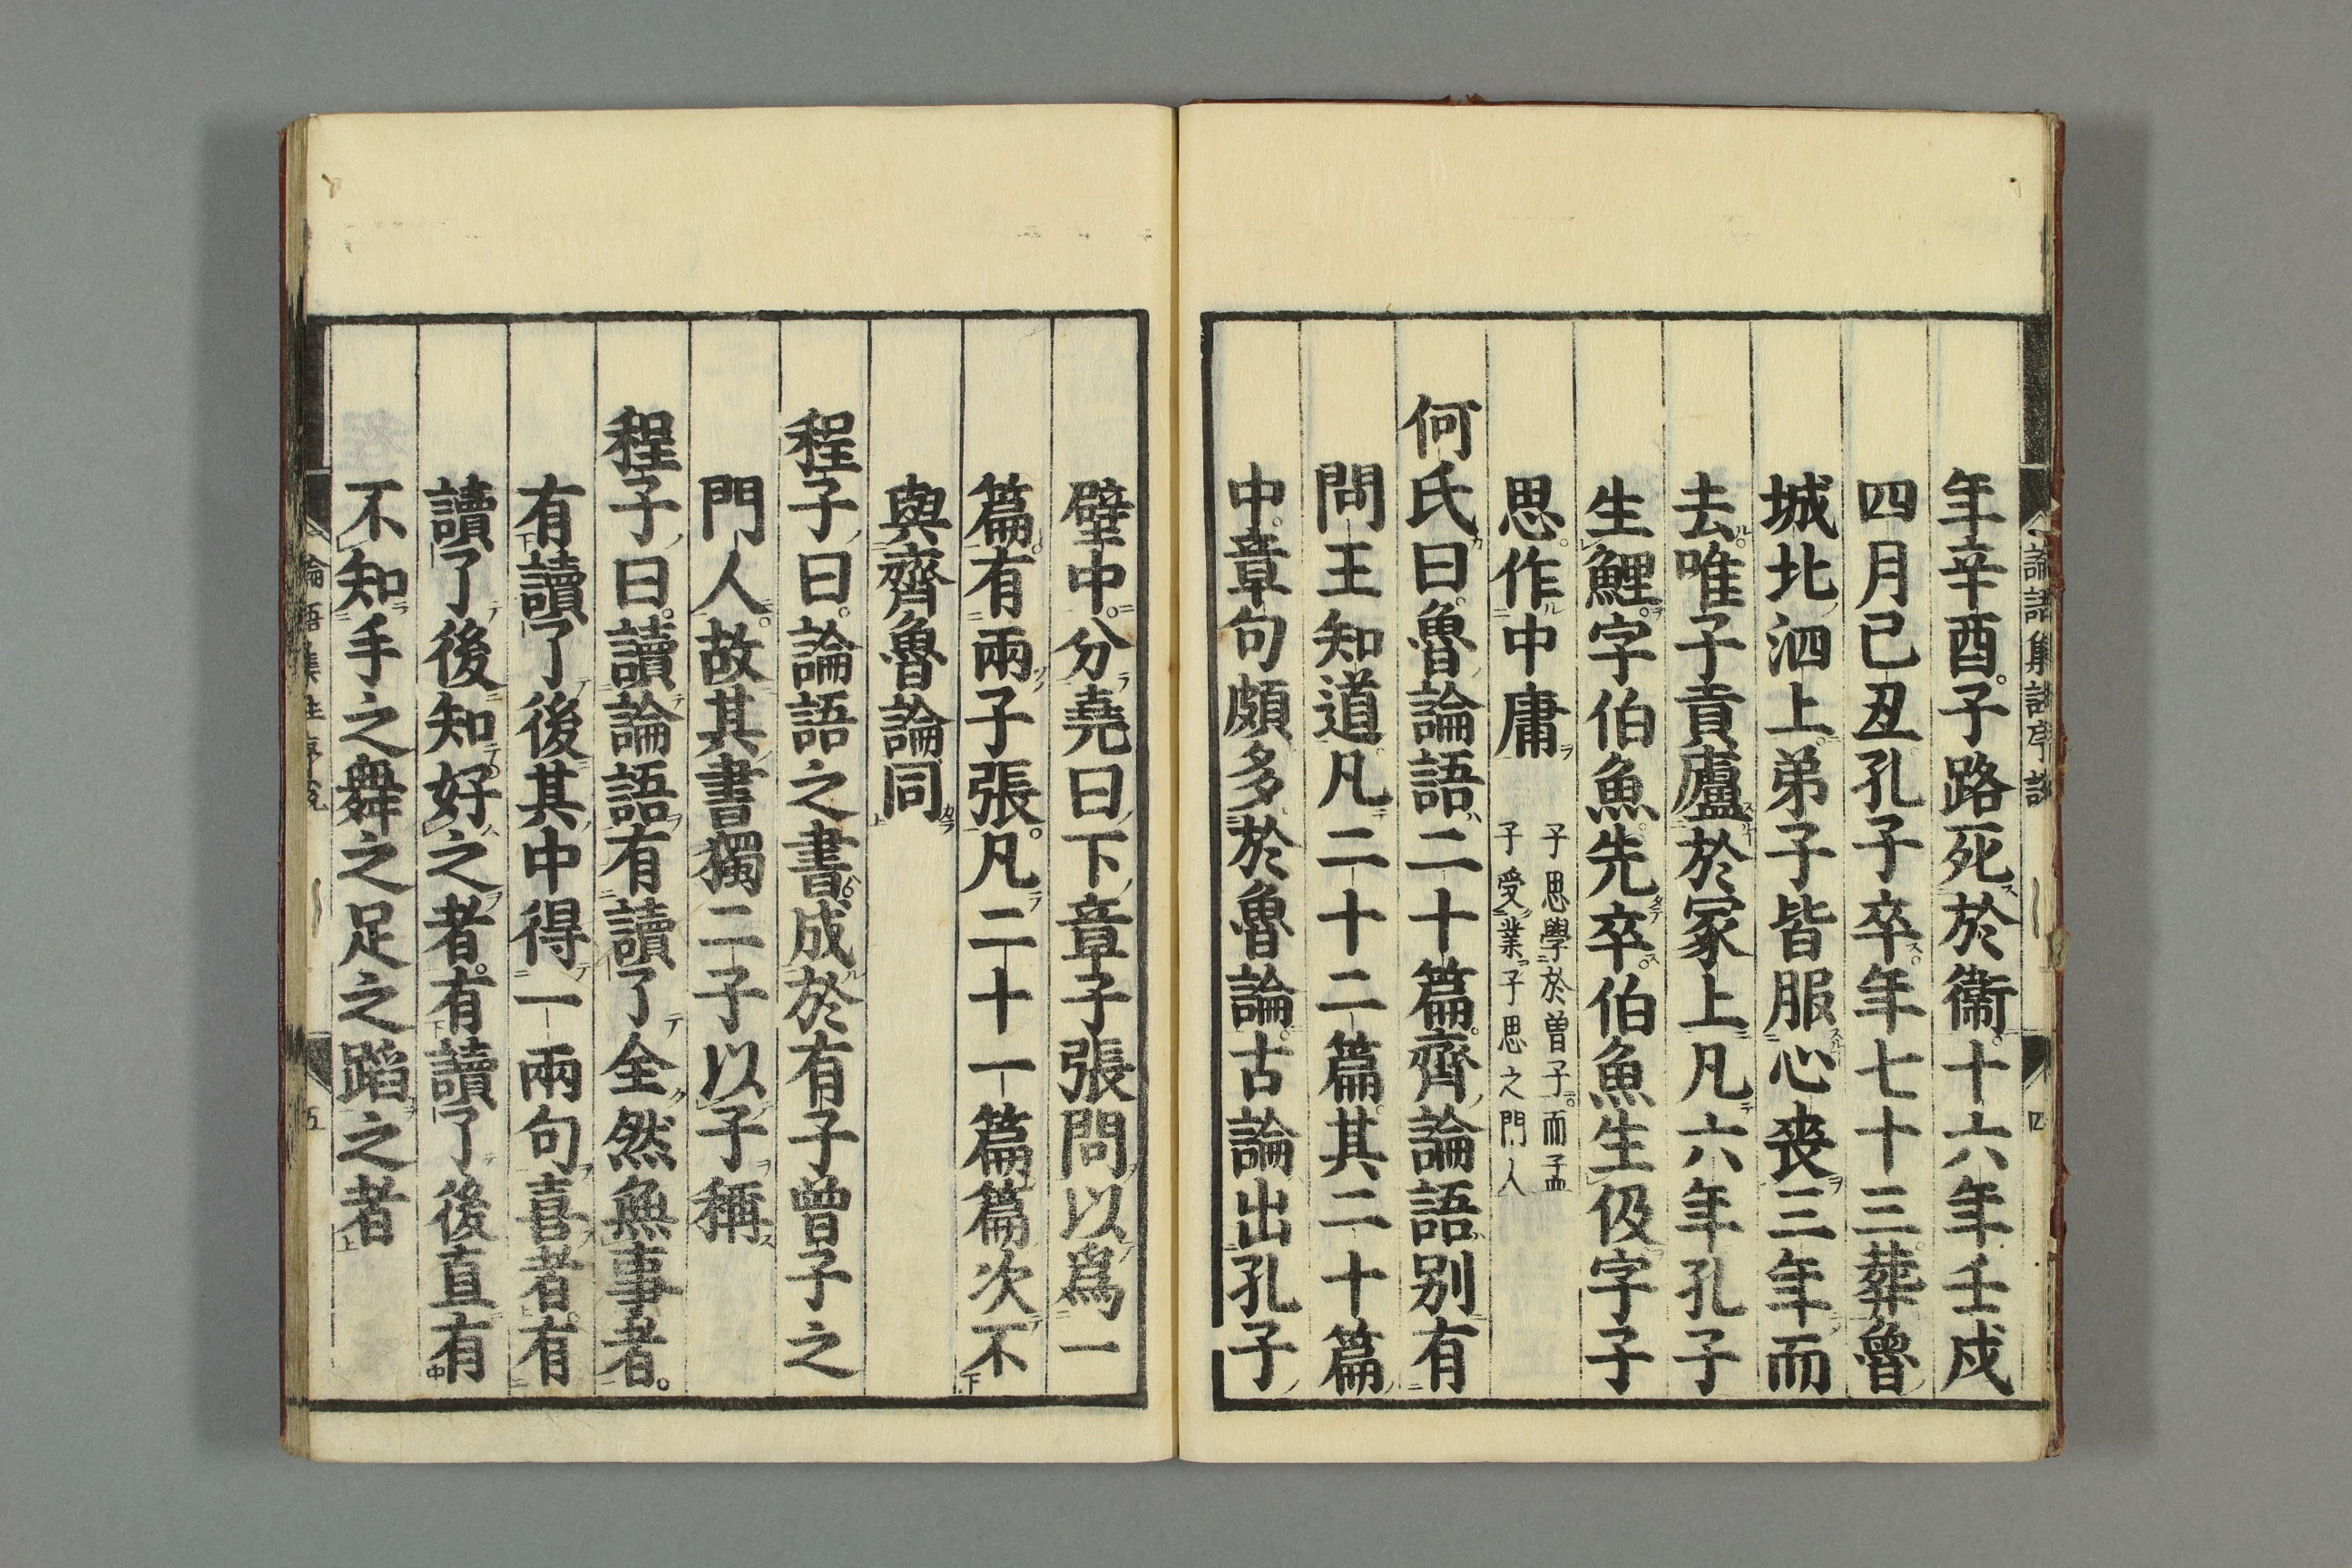 論語集註序說
四
年辛酉。子路死於衞。十六年壬戌
四月己丑孔子卒。年七十三。葬魯
城北泗上。弟子皆服心喪三年而
去。唯子貢廬於冢上凡六年孔子
生鯉。字伯魚。先卒。伯魚生伋字子
思。作中庸
子思學於曽子。而孟
子受業子思之門人
何氏曰。魯論語二十篇。齊論語別有
問王知道。凡二十二篇。其二十篇
中。章句頗多於魯論。古論出孔子
壁中。分堯曰下章子張問以爲一
篇。有兩子張。凡二十一篇篇次不
與齊魯論同
程子曰。論語之書。成於有子曾子之
門人。故其書獨二子以子稱
程子曰。讀論語有讀了全然無事者。
有讀了後其中得一兩句喜者。有
讀了後知好之者。有讀了後直有
不知手之舞之足之蹈之者
論語集註序說
五